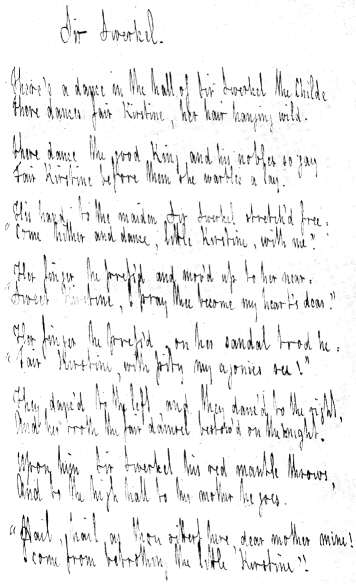 Sir Swerkel.
There's a dance in the hall of Sir Swerkel the Childe
There dances fair Kirstine, her hair hanging wild.
There dance the good King and his nobles so gay
Fair Kirstine before them she warbles a lay.
His hand to the maiden Sir Swerkel stretch'd free:
"Come hither and dance, little Kirstine, with me".
Her finger he press'd and mov'd up to her near:
"Sweet Kirstine, I pray thee become my heart's dear."
Her finger he press'd, on her sandal trod he:
"Fair Kirstine, with pity my agonies see!"
They danc'd to the left and they danc'd to the right,
And her troth the fair damsel bestow'd on the knight.
Upon him Sir Swerkel his red mantle throws,
And to the high hall to his mother he goes.
"Hail, hail, as thou sittest here, dear mother mine!
I come from betrothing the little Kirstine".